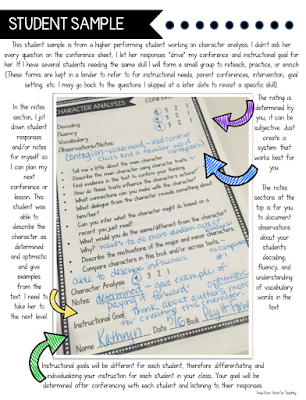 STUDENT SAMPLE
This student sample is from a higher performing student working on character analysis. I didn't ask her
every question on the conference sheet, I let her responses "drive" my conference and instructional goal for
her. If I have several students needing the same skill I will form a small group to reteach, practice, or enrich
(These forms are kept in a binder to refer to for instructional needs, parent conferences, intervention, goal
setting, etc. I may go back to the questions I skipped at a later date to revisit a specific skill).
In the notes
section, I jot
down student
responses
and/or notes
for myself so
I can plan my
next
conference or
lesson. This
student was
able to
describe the
character as
determined
and optimistic
and give
examples
from the
text. I need to
take her to
the next level.
CHARACTER ANALYSIS
Decoding
Fluency
Vocabulary
Observations/Notes:
4 3 2 1
Tell me a little about the main character.
Describe the main character using character traits
Find evidence in the text to confirm your thinking
How do these traits influence the characters actions?
What connections can you make with the character?
What dialogue from the character reveals something about
him/her?
Can you infer what the character might be based on a
recent you just read?
What would you do the same/different from the character?
Why?
Describe the motivations of the major and minor characters.
Compare characters in this book and/or across texts
able to describe influences
Character Analysis: 4 3 2 1
Notes: determined - gave example of
paying it forward
optimistic
Instructional Goal: Think about author's motive
for creating
Name Kathryn Date 9/6 Book Pay it forward
The rating is
determined by
you, it can be
subjective. Just
create a
system that
works best for
you.
The notes
sections at the
top is for you
to document
observations
about your
students
decoding,
fluency, and
understanding
of vocabulary
words in the
text.
Instructional goals will be different for each student, therefore differentiating and
individualizing your instruction for each student in your class. Your goal will be
determined after conferencing with each student and listening to their responses.